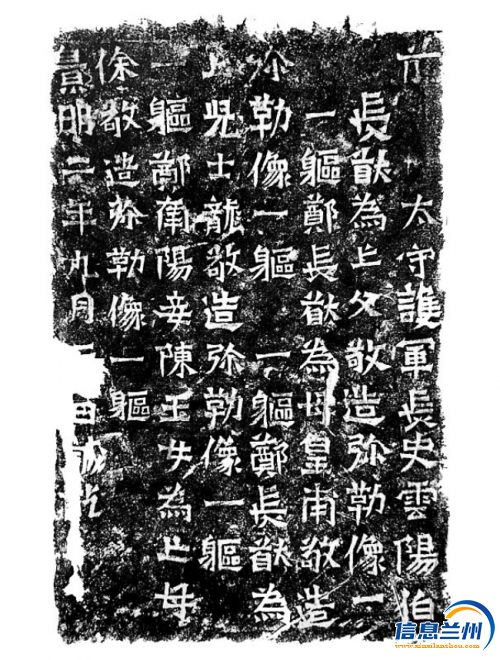 前太守護軍長史雲陽伯
長猷為亡父敬造弥勒像一
一軀鄭長猷為母皇甫敬造
弥勒像一軀 一軀鄭長猷為
亡兒士龍敬造弥勒像一軀
一軀鄭南陽妾陳玉女為亡母
徐敬造弥勒像一軀
景明二年九月日誡訖
信息兰州
www.xinxilanzhou.com